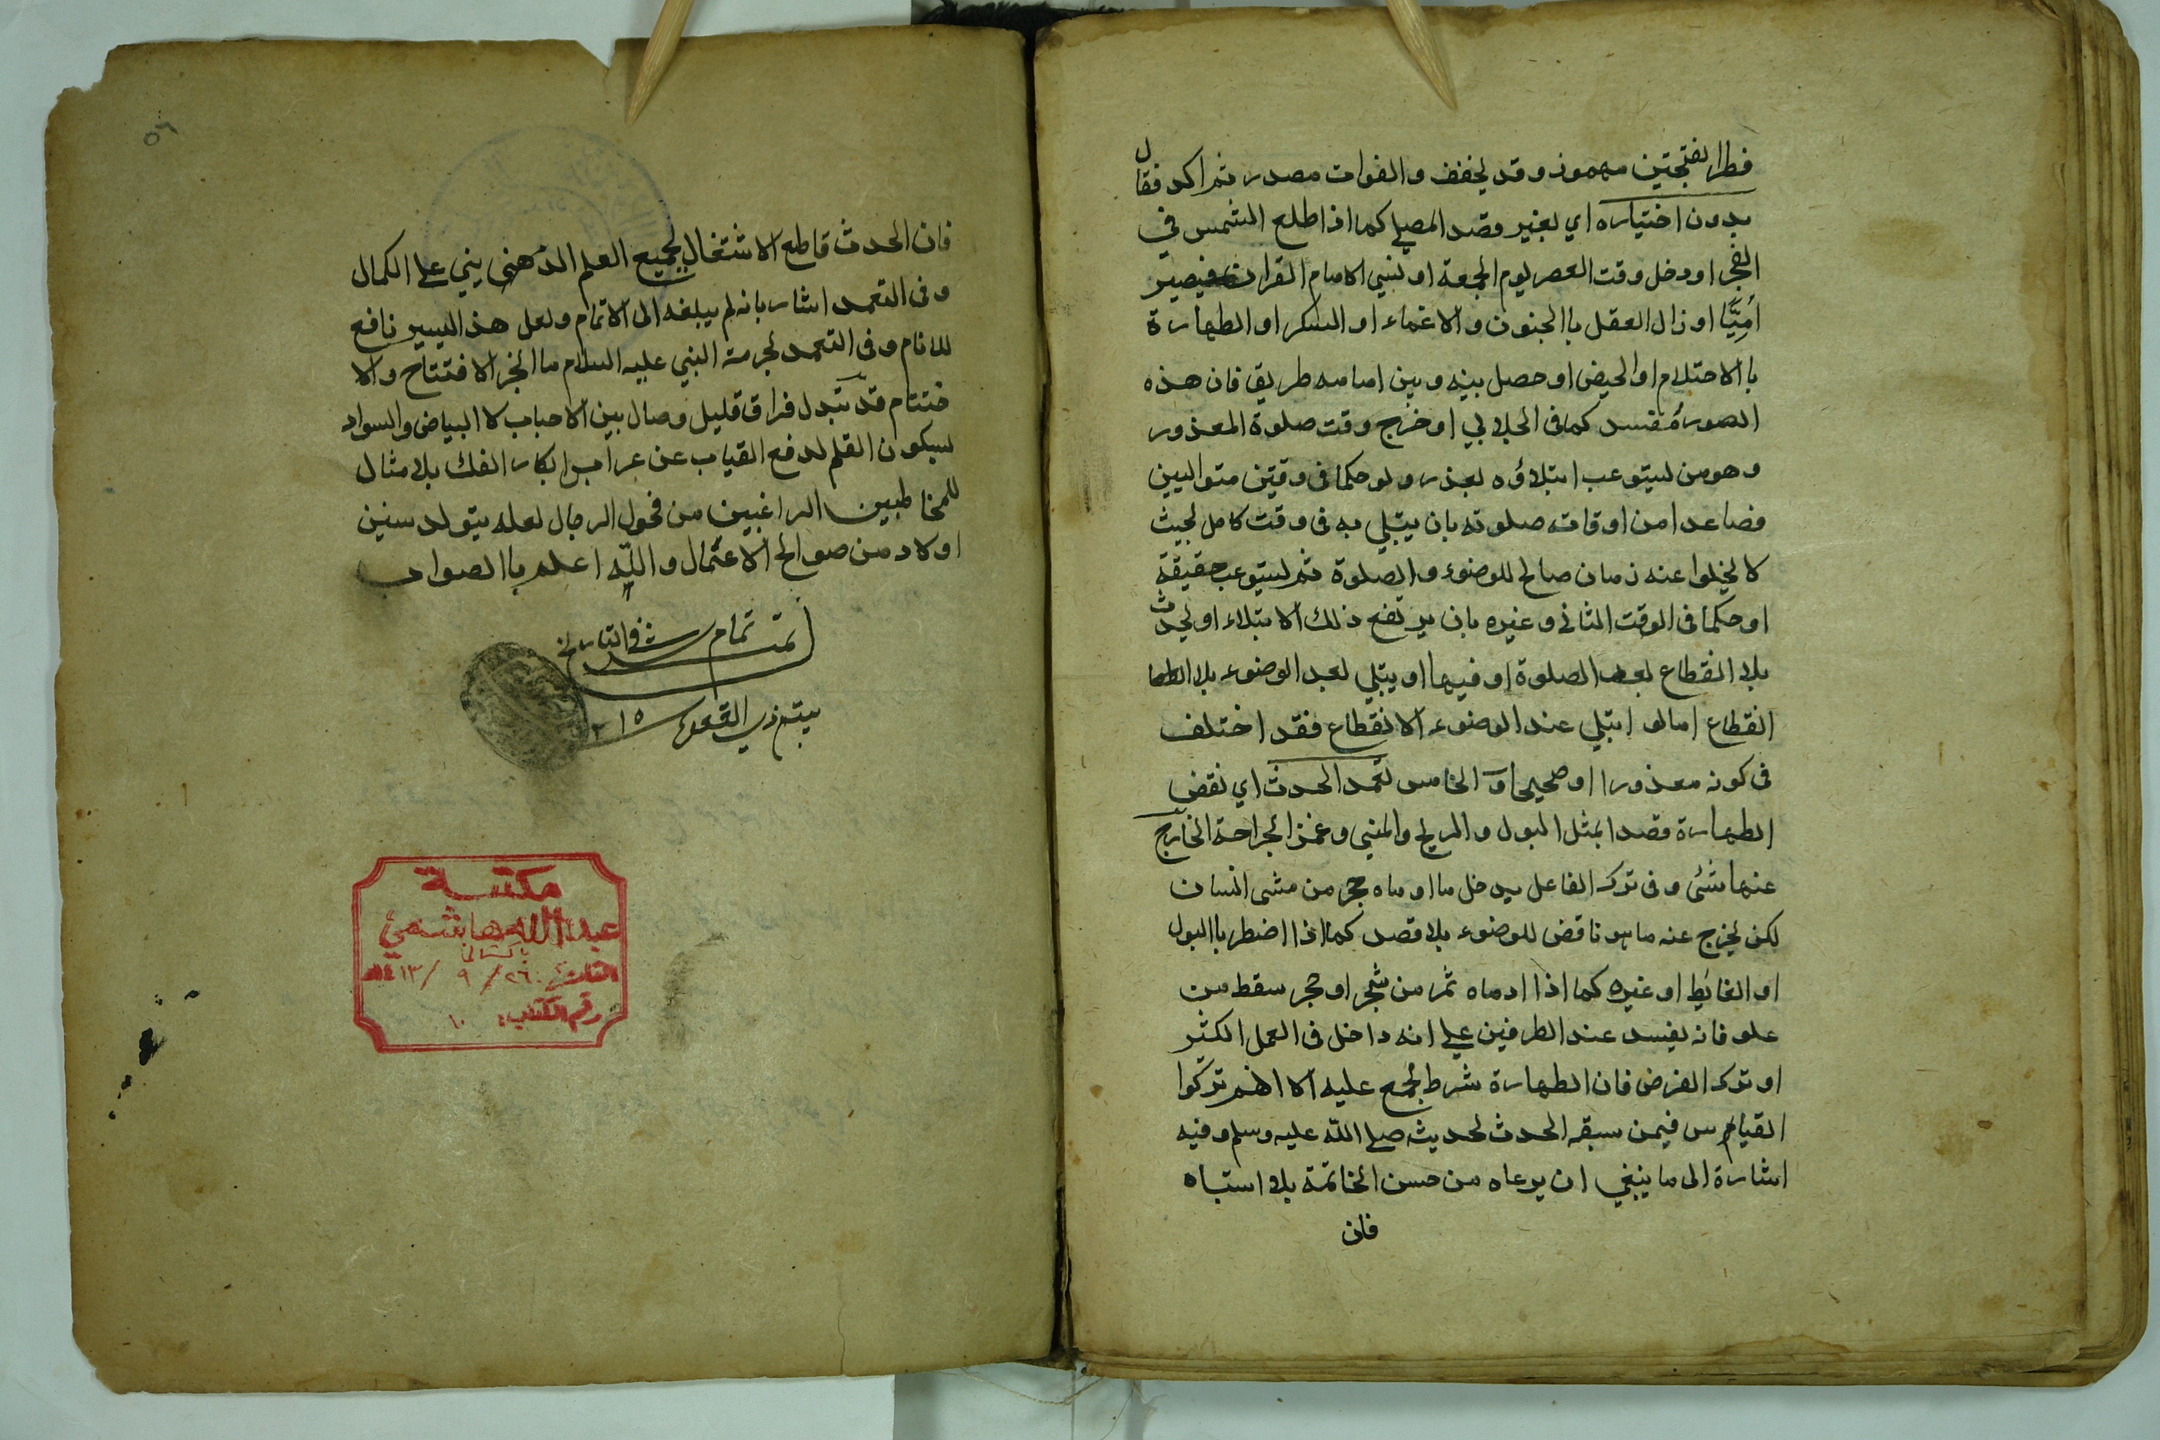 فطرا بفتحتين مهموز وقد يخفف والفوات مصدر ثم اكد فقال
بدون اختياره اي بغير قصد المصلي كما اذا طلع الشمس في
الفجر او دخل وقت العصر يوم الجمعة او نسي الامام القران فيصير
أُمِّيًّا او زال العقل باالجنون والاغماء او السكر او الطهارة
باالاحتلام او الحيض او حصل بينه وبين امامه طريق فان هذه
الصورة مفسد كما في الحلابي او خرج وقت صلوة المعذور
وهو من يستوعب ابتلاؤه بعذر ولو حكما في وقتين متواليين
فصاعدا من اوقات صلوته بان يبتلي به في وقت كامل بحيث
لا يخلوا عنه زمان صالح للوضوء والصلوة ثم يستوعب حقيقة
او حكما في الوقت الثاني وغيره بان يرتفع ذلك الابتلاء او يحدث
بلا انقطاع بعد الصلوة او فيها او يبتلي بعد الوضوء بلا
انقطاع اما لو ابتلي عند الوضوء الانقطاع فقد اختلف
في كونه معذورا او صحيحا و الخامس تعمد الحدث اي نقض
الطهارة قصدا بمثل البول والريح والمني وغمز الجراحة الخارج
عنها شئ وفي ترك الفاعل يدخل ما اوماه حجر من مشى انسان
لكن يخرج عنه ما هو ناقض للوضوء بلا قصد كما اذا اضطر باالبول
او الغائط او غيره كما اذا ادماه ثمر من شجر او حجر سقط من
علو فانه يفسد عند الطرفين علي انه داخل في العمل الكثر
او ترك الفرض فان الطهارة شرط يجمع عليه الا انهم تركوا
القياس فيمن سبقه الحدث لحديثه صلي الله عليه وسلم وفيه
اشارة الى ما ينبغي ان يرعاه من حسن الخاتمة بلا استباه
فان
٥٦
فان الحدث قاطع الاشتغال لجميع العلم الذهني يني علي الكمال
وفي التعمد اشار بانه لم يبلغه الى الاتمام ولعل هذ اليسير نافع
للانام وفي التعمد لحرمة النبي عليه السلام ما انجر الافتتاح والا
ختتام قد تبدل فراق قليل وصال بين الاحباب لا البياض والسواد
سيكون القلم لدفع القياب عن عرايس ابكار الفك بلا مثال
للمخاطبين الراغبين من فحول الرجال لعله يتولد سنين
اولاد من صوالح الاعمال والله اعلم باالصواب
تمت تمام شد في التاريخ
بيتم ذي القعده ١٢١٥
مكتبة
عبدالله هاشمي
التاريخ: ٢٦ / ٩ / ١٤١٣ هـ
رقم الكتاب: ١٠